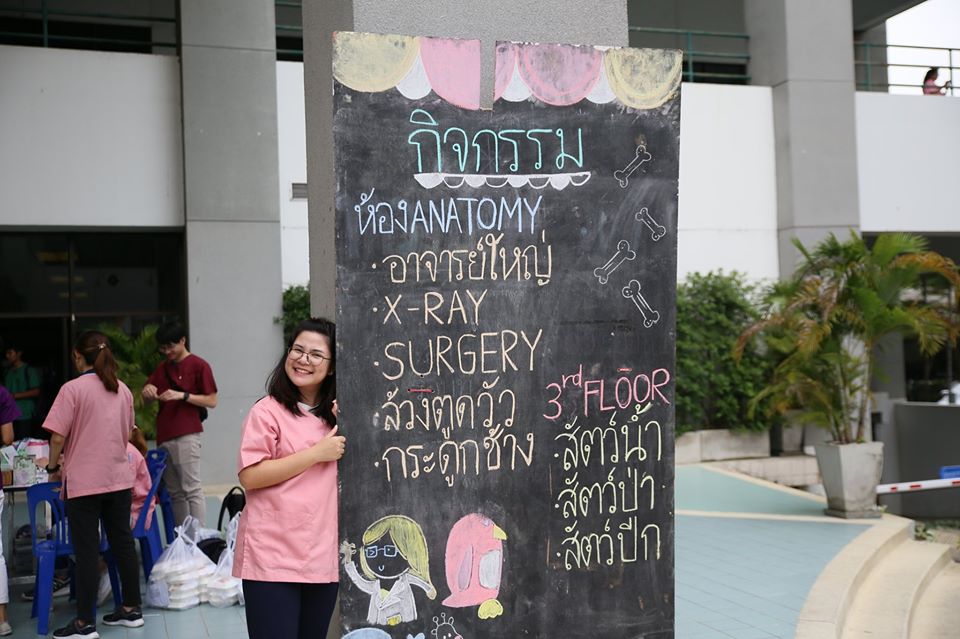 กิจกรรม
ห้องANATOMY
·อาจารย์ใหญ่
·X-RAY
·SURGERY
·ล้วงตูดวัว
·กระดูกช้าง
3rd FLOOR
·สัตว์น้ำ
·สัตว์ป่า
·สัตว์ปีก